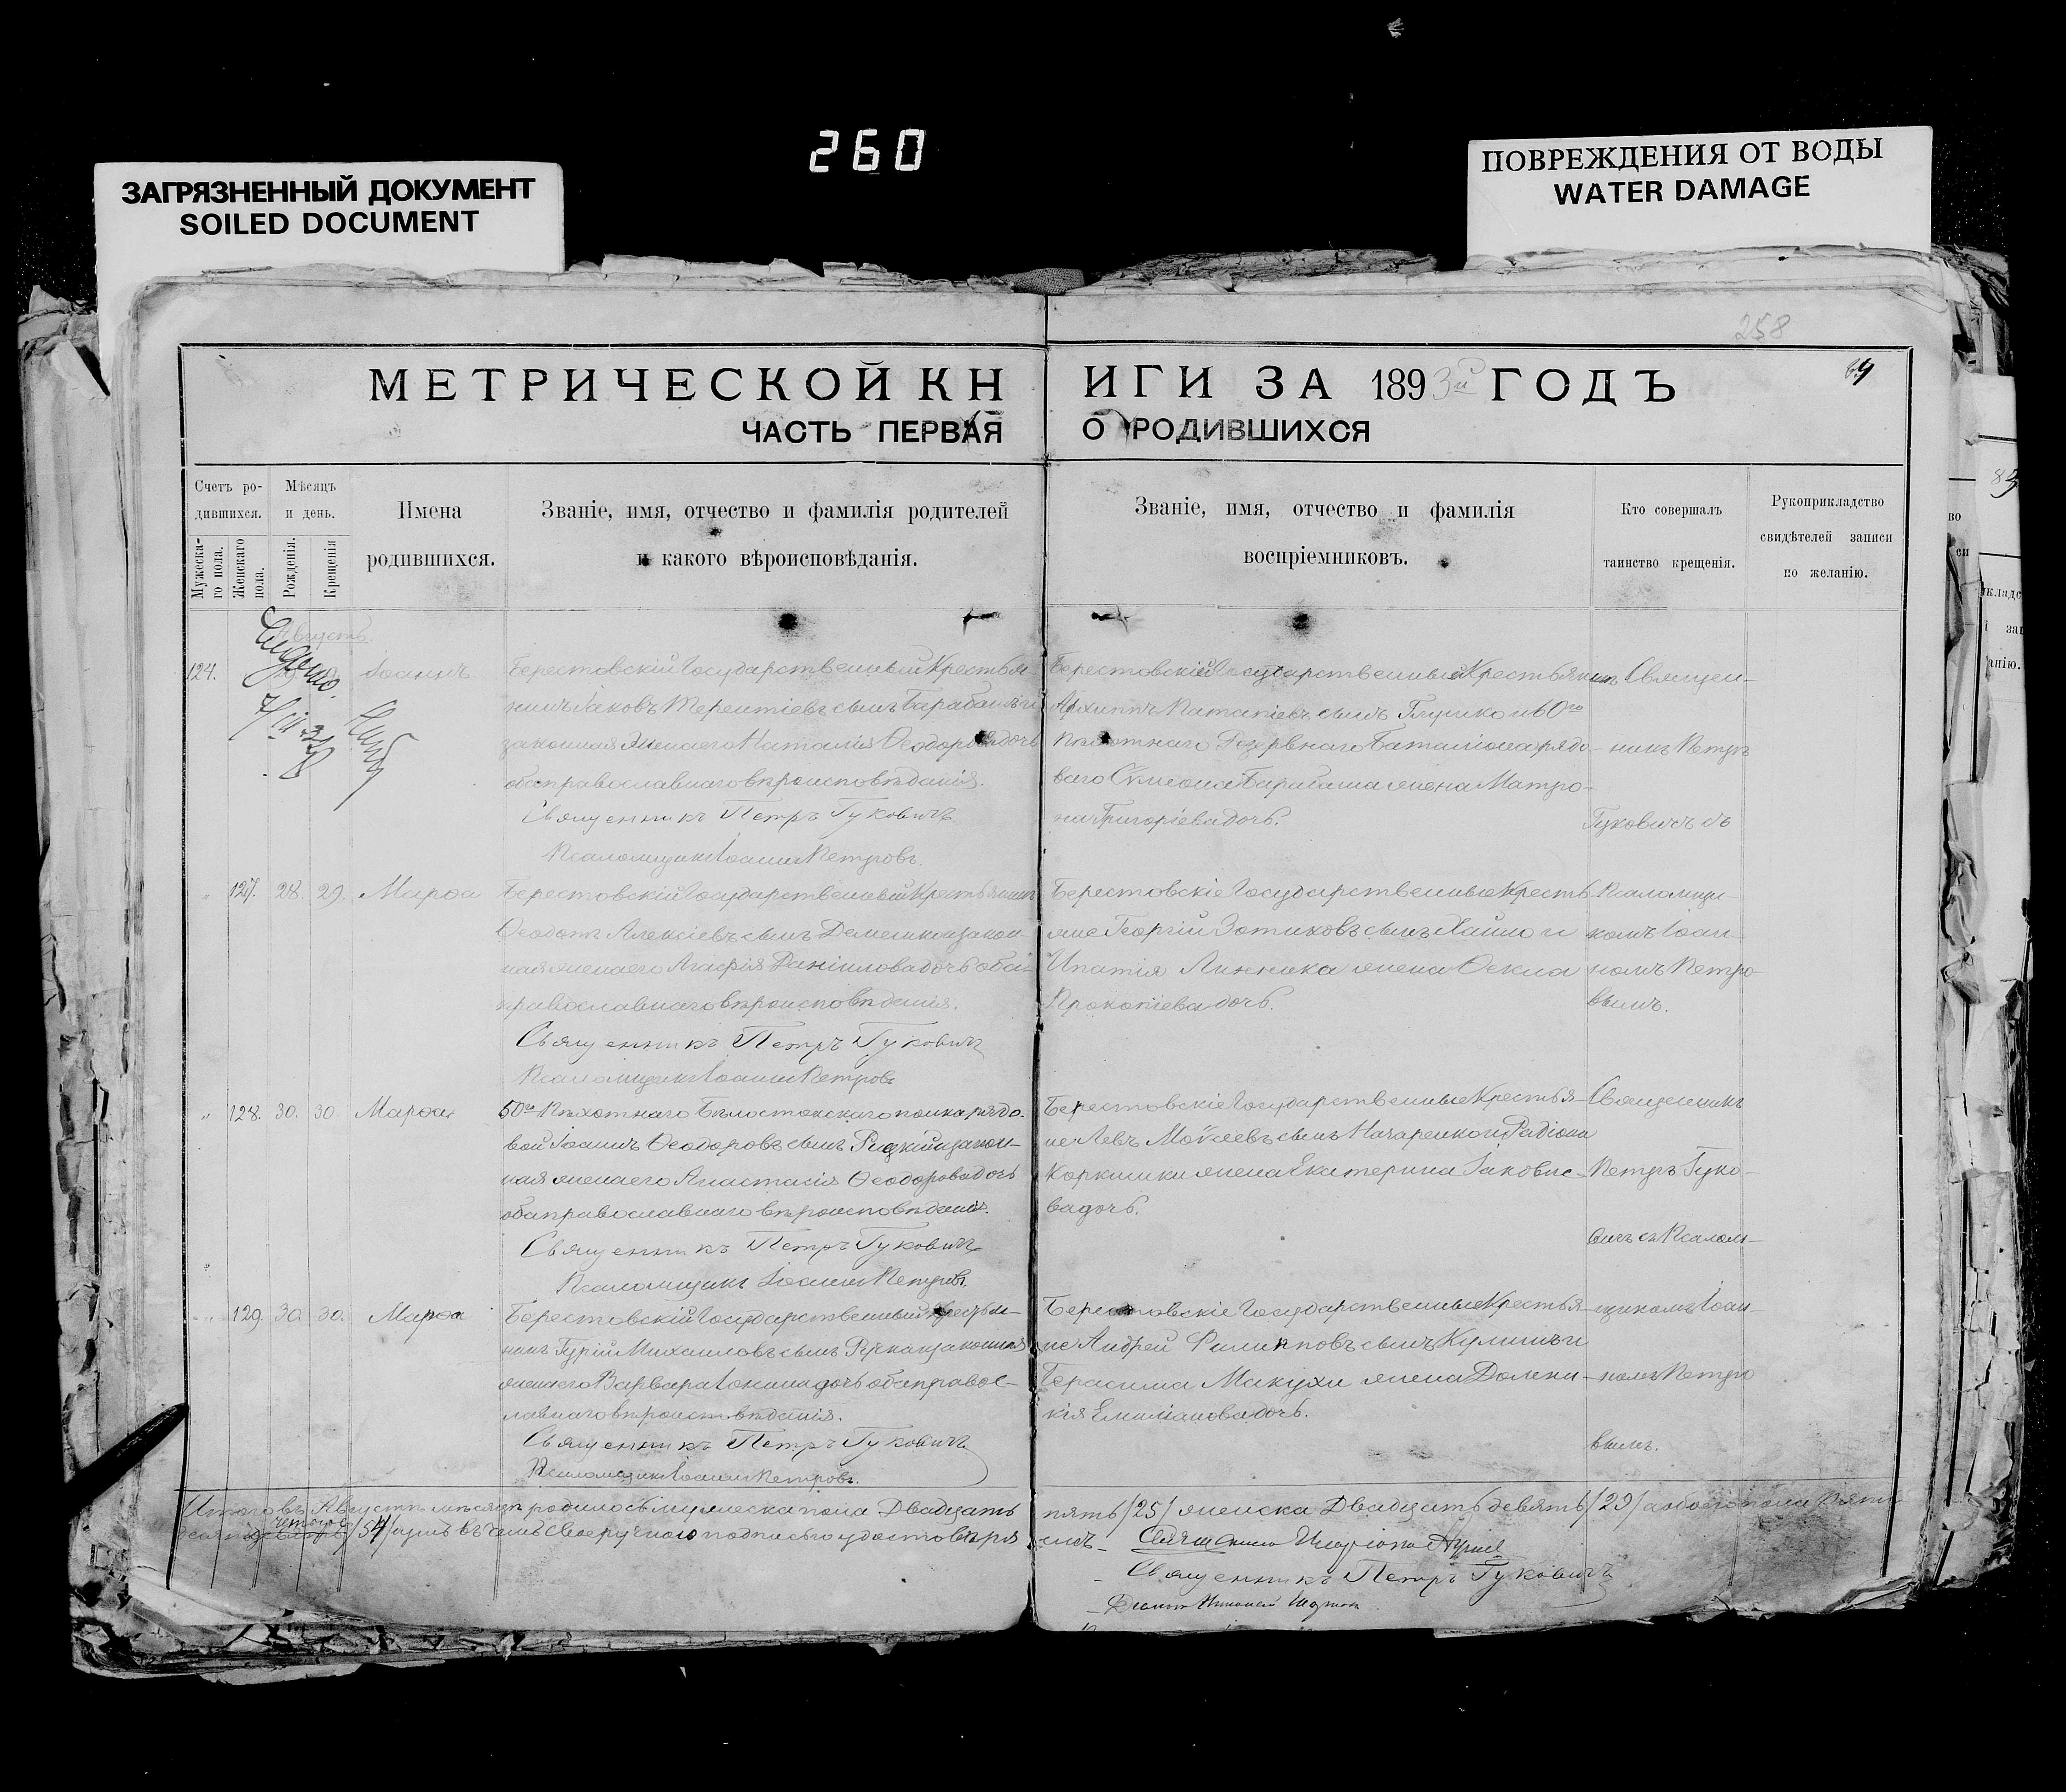 260
ЗАГРЯЗНЕННЫЙ ДОКУМЕНТ
SOILED DOCUMENT
ПОВРЕЖДЕНИЯ ОТ ВОДЫ
WATER DAMAGE
258
МЕТРИЧЕСКОЙ КНИГИ ЗА 1893й ГОДЪ
ЧАСТЬ ПЕРВАЯ О РОДИВШИХСЯ
Счетъ ро-
дившихся.
Мужеска-
го пола.
Женскаго
пола.
Мѣсяцъ
и день.
Рожденія.
Крещенія
Имена
родившихся.
Званіе, имя, отчество и фамилія родителей
и какого вѣроисповѣданія.
Званіе, имя, отчество и фамилія
воспріемниковъ.
Кто совершалъ
таинство крещенія.
Рукоприкладство
свидѣтелей записи
по желанію.
Августъ
124.
Іоаннъ
Берестовскій Государственный Крестья
нинъ Іаковъ Терентіевъ сынъ Барабашъ и
законная жена его Наталія Ѳеодорова дочь
оба православнаго вѣроисповѣданія.
Священникъ Петръ Гуковичъ
Псаломщикъ Іоаннъ Петровъ.
Берестовскій Государственный Крестьянинъ
Архиппъ Потапіевъ сынъ
Пѣхотнаго Резервнаго Баталіона рядо-
ваго Сѵмеона Барабаша жена Матро-
на Григоріева дочь.
Священ-
никъ Петръ
Гуковичъ съ
" 127. 28. 29. Марѳа
Берестовскій Государственный Крестьянинъ
Ѳеодотъ Алексіевъ сынъ Демешко и закон
ная жена его Агафія Даніилова дочь оба
православнаго вѣроисповѣданія.
Священникъ Петръ Гуковичъ
Псаломщикъ Іоаннъ Петровъ
Берестовскіе Государственные Кресть
яне Георгій Зотиковъ сынъ Хайло и
Ипатія Линника жена Ѳекла
Прокопіева дочь.
Псаломщи-
комъ Іоан-
номъ Петро-
вымъ.
" 128. 30. 30. Марѳа
50го Пѣхотнаго Бѣлостокскаго полка рядо.
вой Іоаннъ Ѳеодоровъ сынъ Ридкій и закон-
ная жена его Анастасія Ѳеодорова дочь
оба православнаго вѣроисповѣданія.
Священникъ Петръ Гуковичъ
Псаломщикъ Іоаннъ Петровъ.
Берестовскіе Государственные Крестья-
не Левъ Моѵсеевъ сынъ Назаренко и Радіона
жена Екатерина Іаковле-
ва дочь.
Священникъ
Петръ Гуко-
вичъ съ Псалом-
" 129. 30. 30. Марѳа
Берестовскій Государственный Крестья-
нинъ Гурій Михаиловъ сынъ и законная
жена его Варвара Іонина дочь оба правос-
лавнаго вѣроисповѣданія.
Священникъ Петръ Гуковичъ
Псаломщикъ Іоаннъ Петровъ.
Берестовскіе Государственные Крестья-
не Андрей Филипповъ сынъ Кулишъ и
Герасима Макухи жена Домни-
кія Емиліанова дочь.
щикомъ Іоан-
номъ Петро
вымъ.
Итого въ Августѣ мѣсяцѣ родилось мужеска пола Двадцать пять /25/ женска Двадцать девять /29/ а обоего пола Пять
десятъ четыре /54/ душъ въ чемъ своеручною подписью удостовѣряемъ-
Священникъ Петръ Гуковичъ